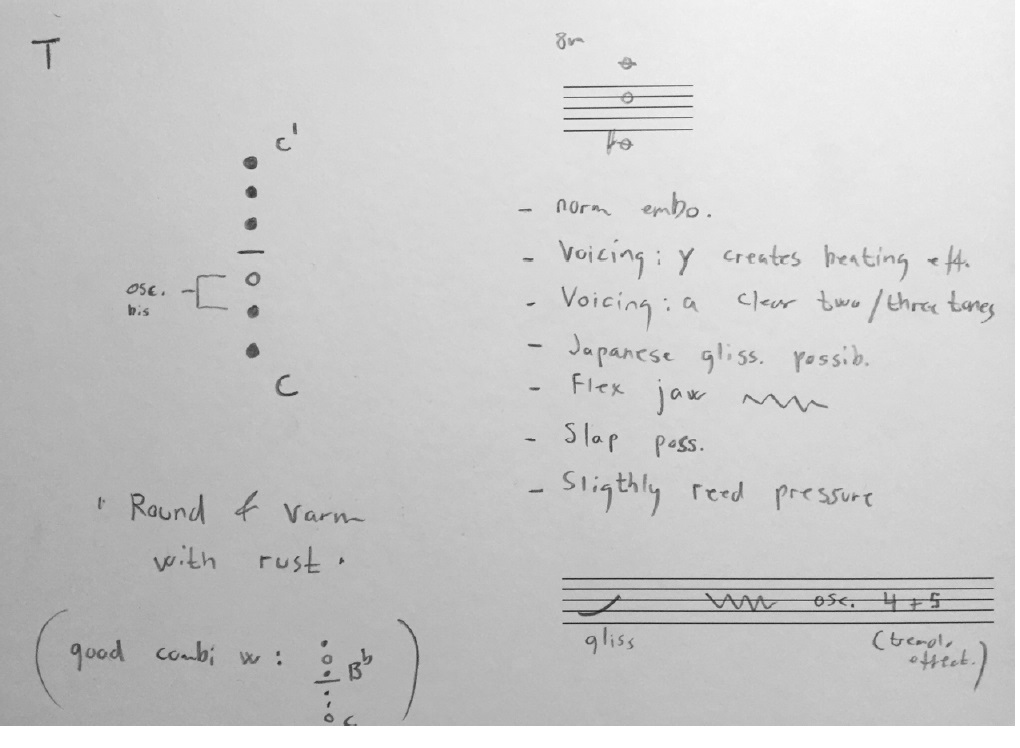 T
C'
osc.
bis
C
" Round & Varm
with rust "
(good combi w:
Bb
C)
8va
- norm embo.
- Voicing: Y creates beating eff.
- Voicing: a clear two/three tones
- Japanese gliss. possib.
- Flex jaw
- Slap poss.
- Sligthly reed pressure
osc. 4+5
gliss
(tremolo
effect.)